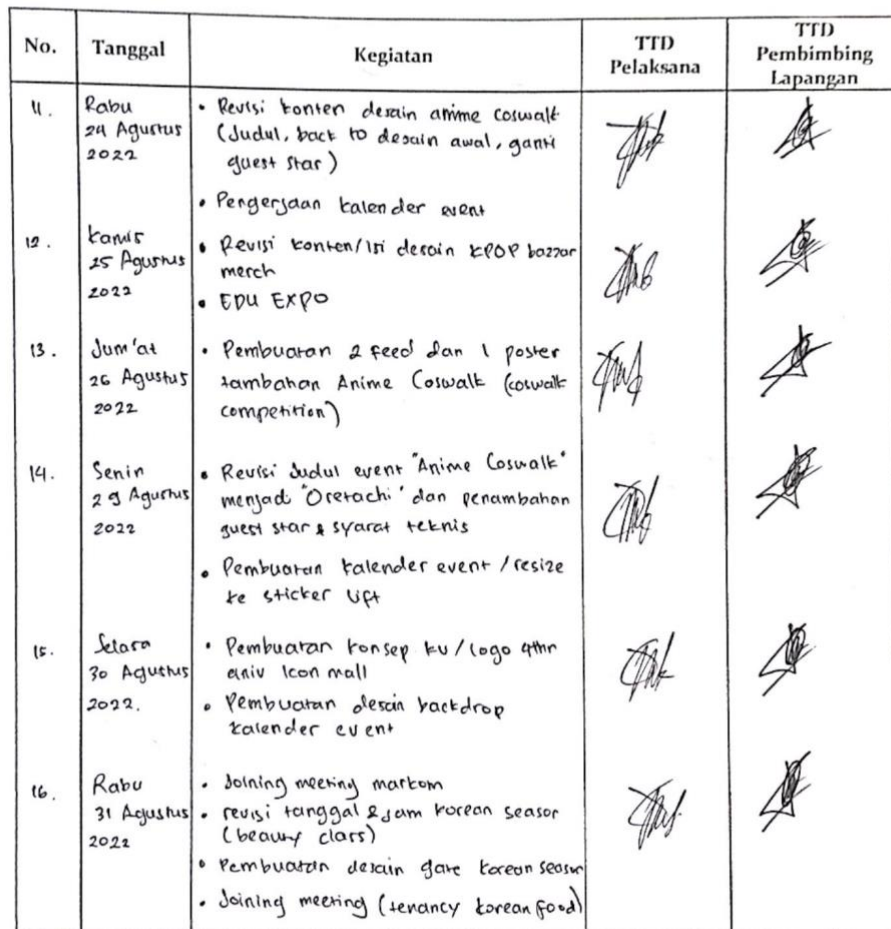 No. Tanggal Kegiatan TTD Pelaksana TTD Pembimbing Lapangan
11. Rabu 24 Agustus 2022
• Revisi konten desain anime coswalk
(Judul, back to desain awal, ganti
guest star)
• Pengerjaan kalender event
12. Kamis 25 Agustus 2022
• Revisi konten/isi desain KPOP bazzar
merch
• EDU EXPO
13. Jum'at 26 Agustus 2022
• Pembuatan 2 feed dan 1 poster
tambahan Anime Coswalk (coswalk
competition)
14. Senin 29 Agustus 2022
• Revisi Judul event "Anime Coswalk"
menjadi "Oretachi" dan penambahan
guest star & syarat teknis
• Pembuatan kalender event / resize
ke sticker lift
15. Selasa 30 Agustus 2022.
• Pembuatan konsep kv / logo 4thn
aniv Icon mall
• Pembuatan desain backdrop
kalender event
16. Rabu 31 Agustus 2022
• Joining meeting markom
• revisi tanggal & jam korean seasor
(beauty class)
• Pembuatan desain gate korean seasor
• Joining meeting (tenancy korean food)